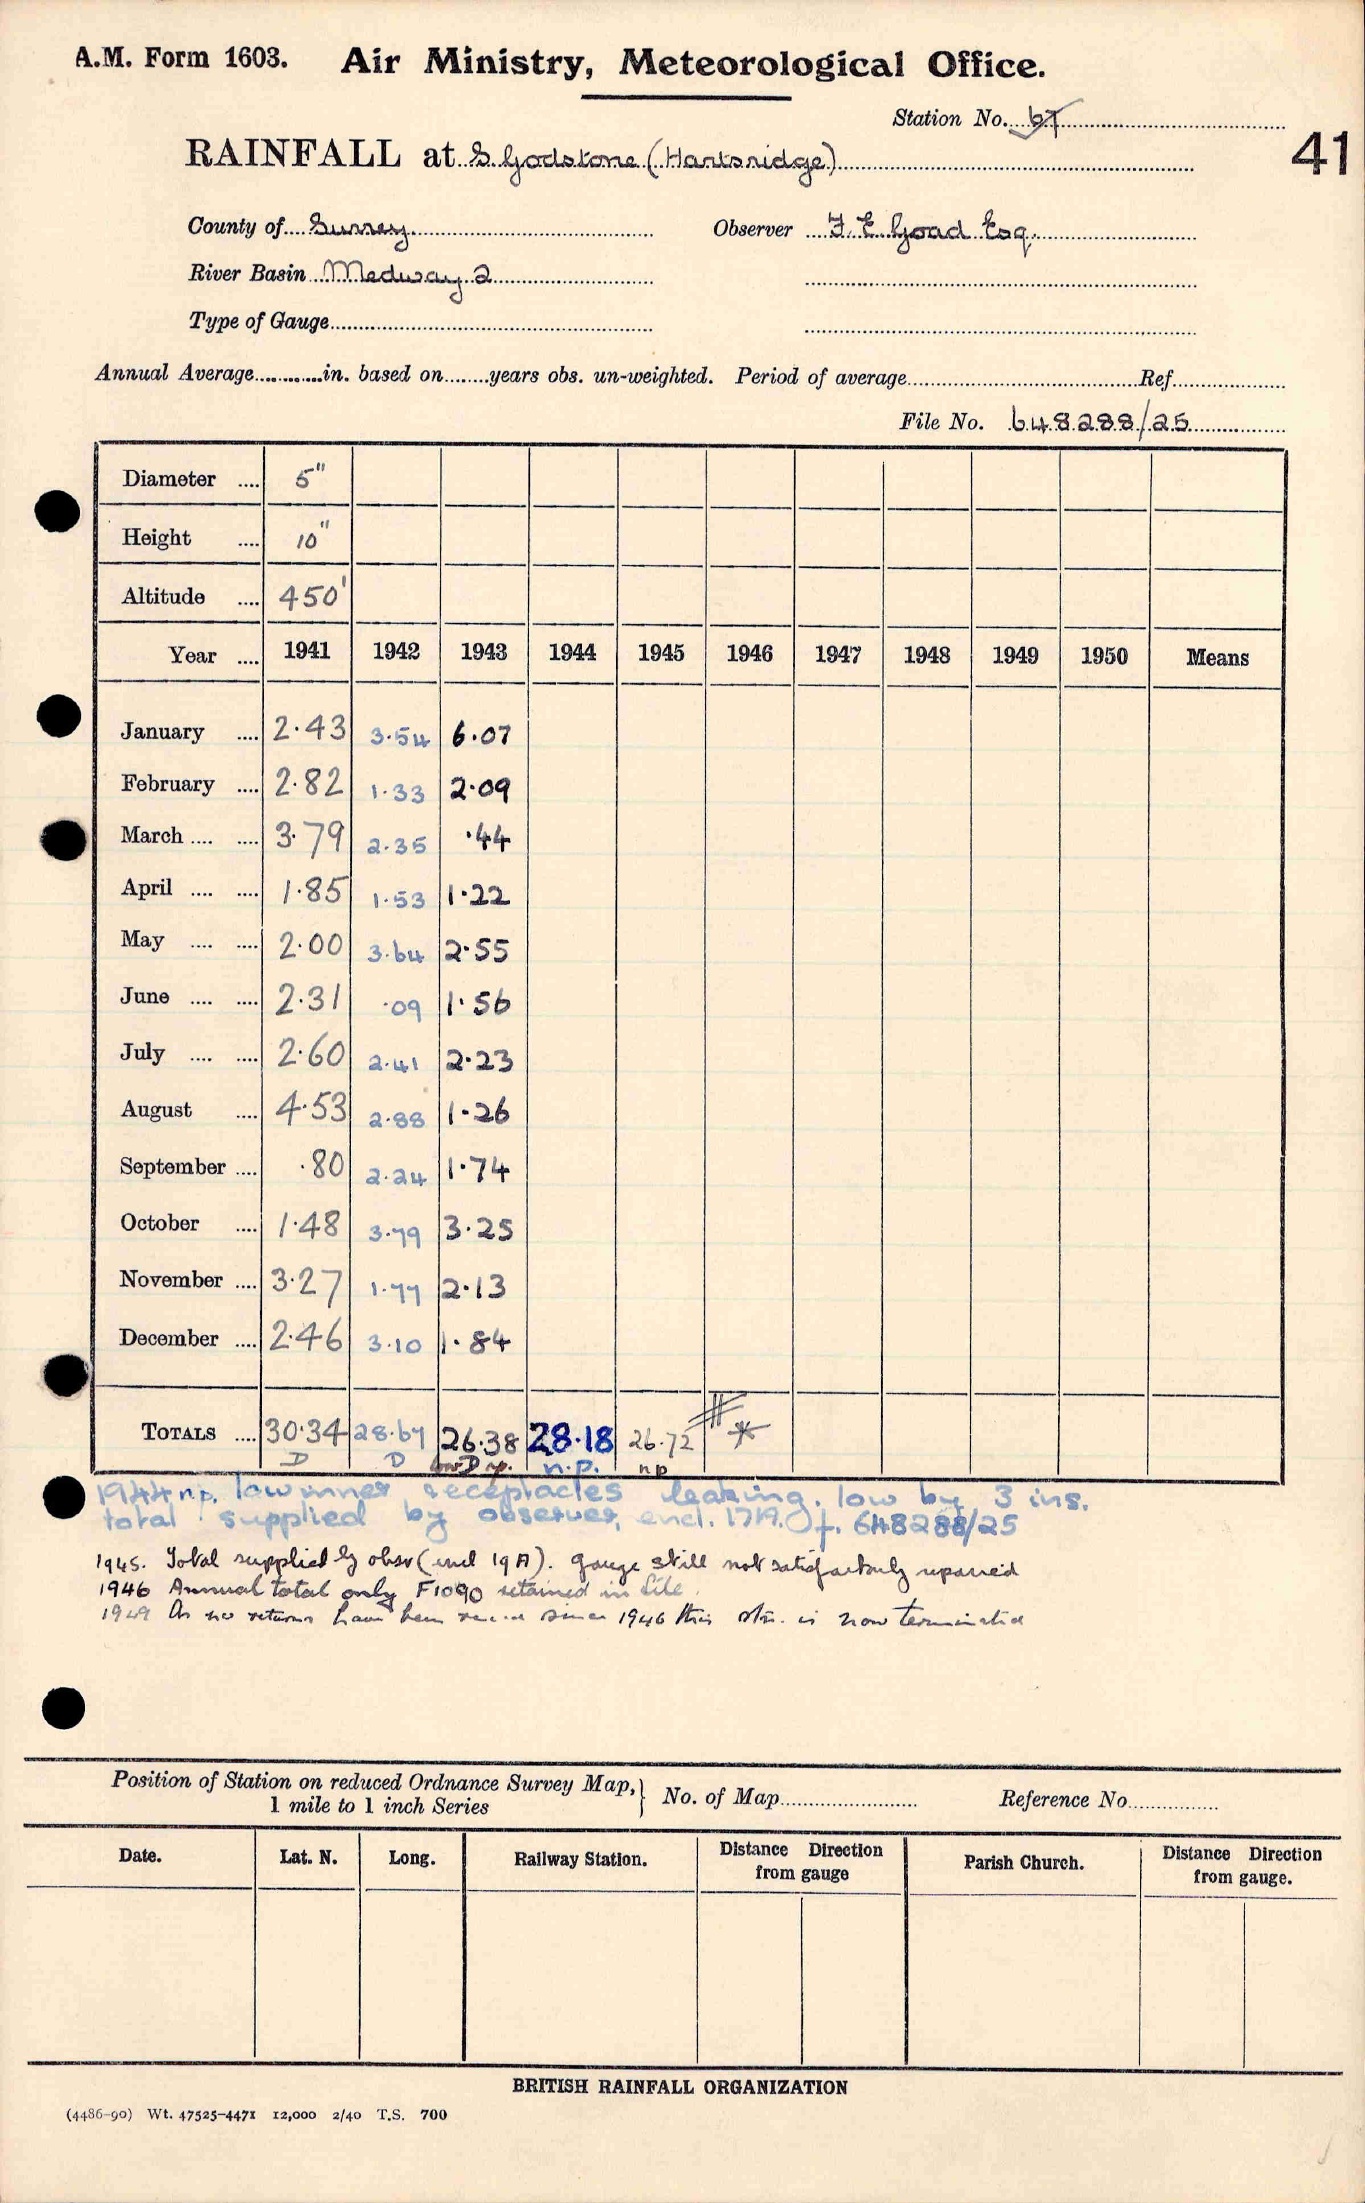 A.M. Form 1603. Air Ministry, Meteorological Office.
Station No. 67
41
RAINFALL at S. Godstone (Hartsridge)
County of Surrey Observer F. E Goad Esq.
River Basin Medway 2
Type of Gauge
Annual Average............in. based on........years obs. un-weighted. Period of average Ref
File No. 648288/25
Diameter .... 5"
Height .... 10"
Altitude .... 450'
Year .... 1941 1942 1943 1944 1945 1946 1947 1948 1949 1950 Means
January .... 2.43 3.54 6.07
February .... 2.82 1.33 2.09
March .... .... 3.79 2.35 .44
April .... .... 1.85 1.53 1.22
May .... .... 2.00 3.64 2.55
June .... .... 2.31 .09 1.56
July .... .... 2.60 2.41 2.23
August .... 4.53 2.88 1.26
September .... .80 2.24 1.74
October .... 1.48 3.79 3.25
November .... 3.27 1.77 2.13
December .... 2.46 3.10 1.84
TOTALS .... 30.34 28.67 26.38 28.18 26.72 *
D D low D n.p. n.p. np
1944 n.p. low inner receptacles leaking. low by 3 ins.
total supplied by observer, encl. 17A. of. 648288/25
1945. Total supplied by obsr (encl 19A). gauge still not satisfactorily repaired
1946 Annual total only F1090 retained in file.
1949 As no returns have been since 1946 this stn. is now terminated
Position of Station on reduced Ordnance Survey Map, } No. of Map Reference No
1 mile to 1 inch Series
Date. Lat. N. Long. Railway Station. Distance Direction from gauge Parish Church. Distance Direction from gauge.
BRITISH RAINFALL ORGANIZATION
(4486-90) Wt. 47525-4471 12,000 2/40 T.S. 700